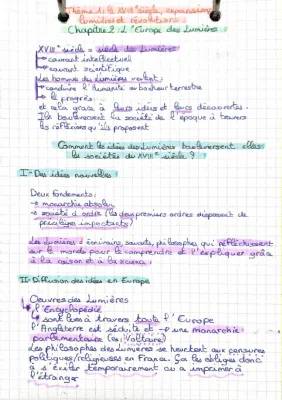 Thème 1: le XVIII° siècle, expansions,
lumières et révolutions.
Chapitre 2: L'Europe des Lumières.
XVIII° siècle = siècle des Lumières
→ courant intellectuel
→ courant scientifique
Les hommes des Lumières veulent:
→ conduire l'humanité au bonheur terrestre
→ le progrès
et cela grâce à leurs idées et leurs découvertes.
Ils bouleversent la société de l'époque à travers
les réflexions qu'ils proposent
Comment les idées des Lumières bouleversent elles
les sociétés du XVIII° siècle?
I - Des idées nouvelles
Deux fondements:
→ monarchie absolue
→ société d'ordre (les deux premiers ordres disposent de
privilèges importants)
Les Lumières = écrivains, savants, philosophes qui réfléchissent
sur le monde pour le comprendre et l'expliquer grâce
à la raison et à la science.
II - Diffusion des idées en Europe
Oeuvres des Lumières
→ l'Encyclopédie
→ sont lues à travers toute l'Europe
l'Angleterre est séduite et → une monarchie
parlementaire (ex: Voltaire)
Les philosophes des Lumières se heurtent aux censures
politiques/religieuses en France. Ça les obligent donc
à s'exiler temporairement ou à imprimer à
l'étranger